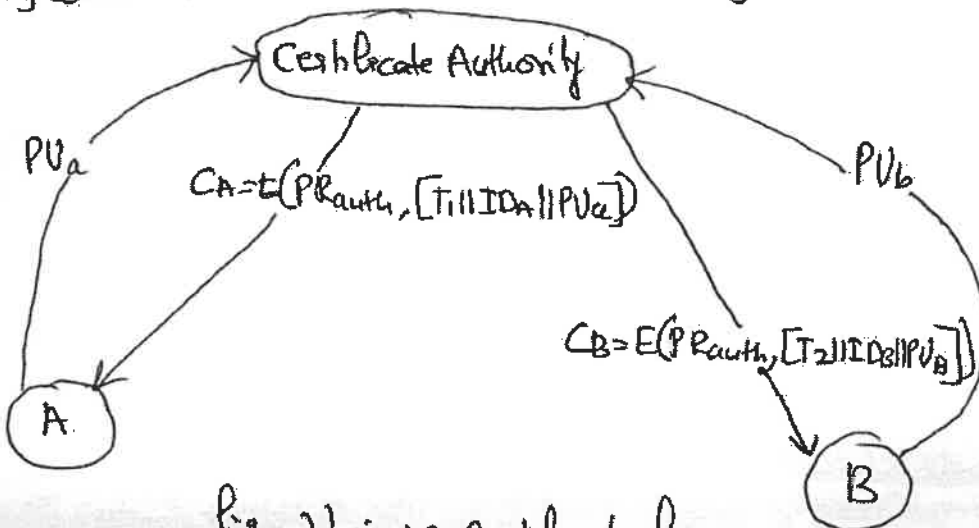 Certificate Authority
PUa
CA=E(PRauth, [T1||IDA||PUa])
PUb
CB=E(PRauth, [T2||IDB||PUB])
A
B